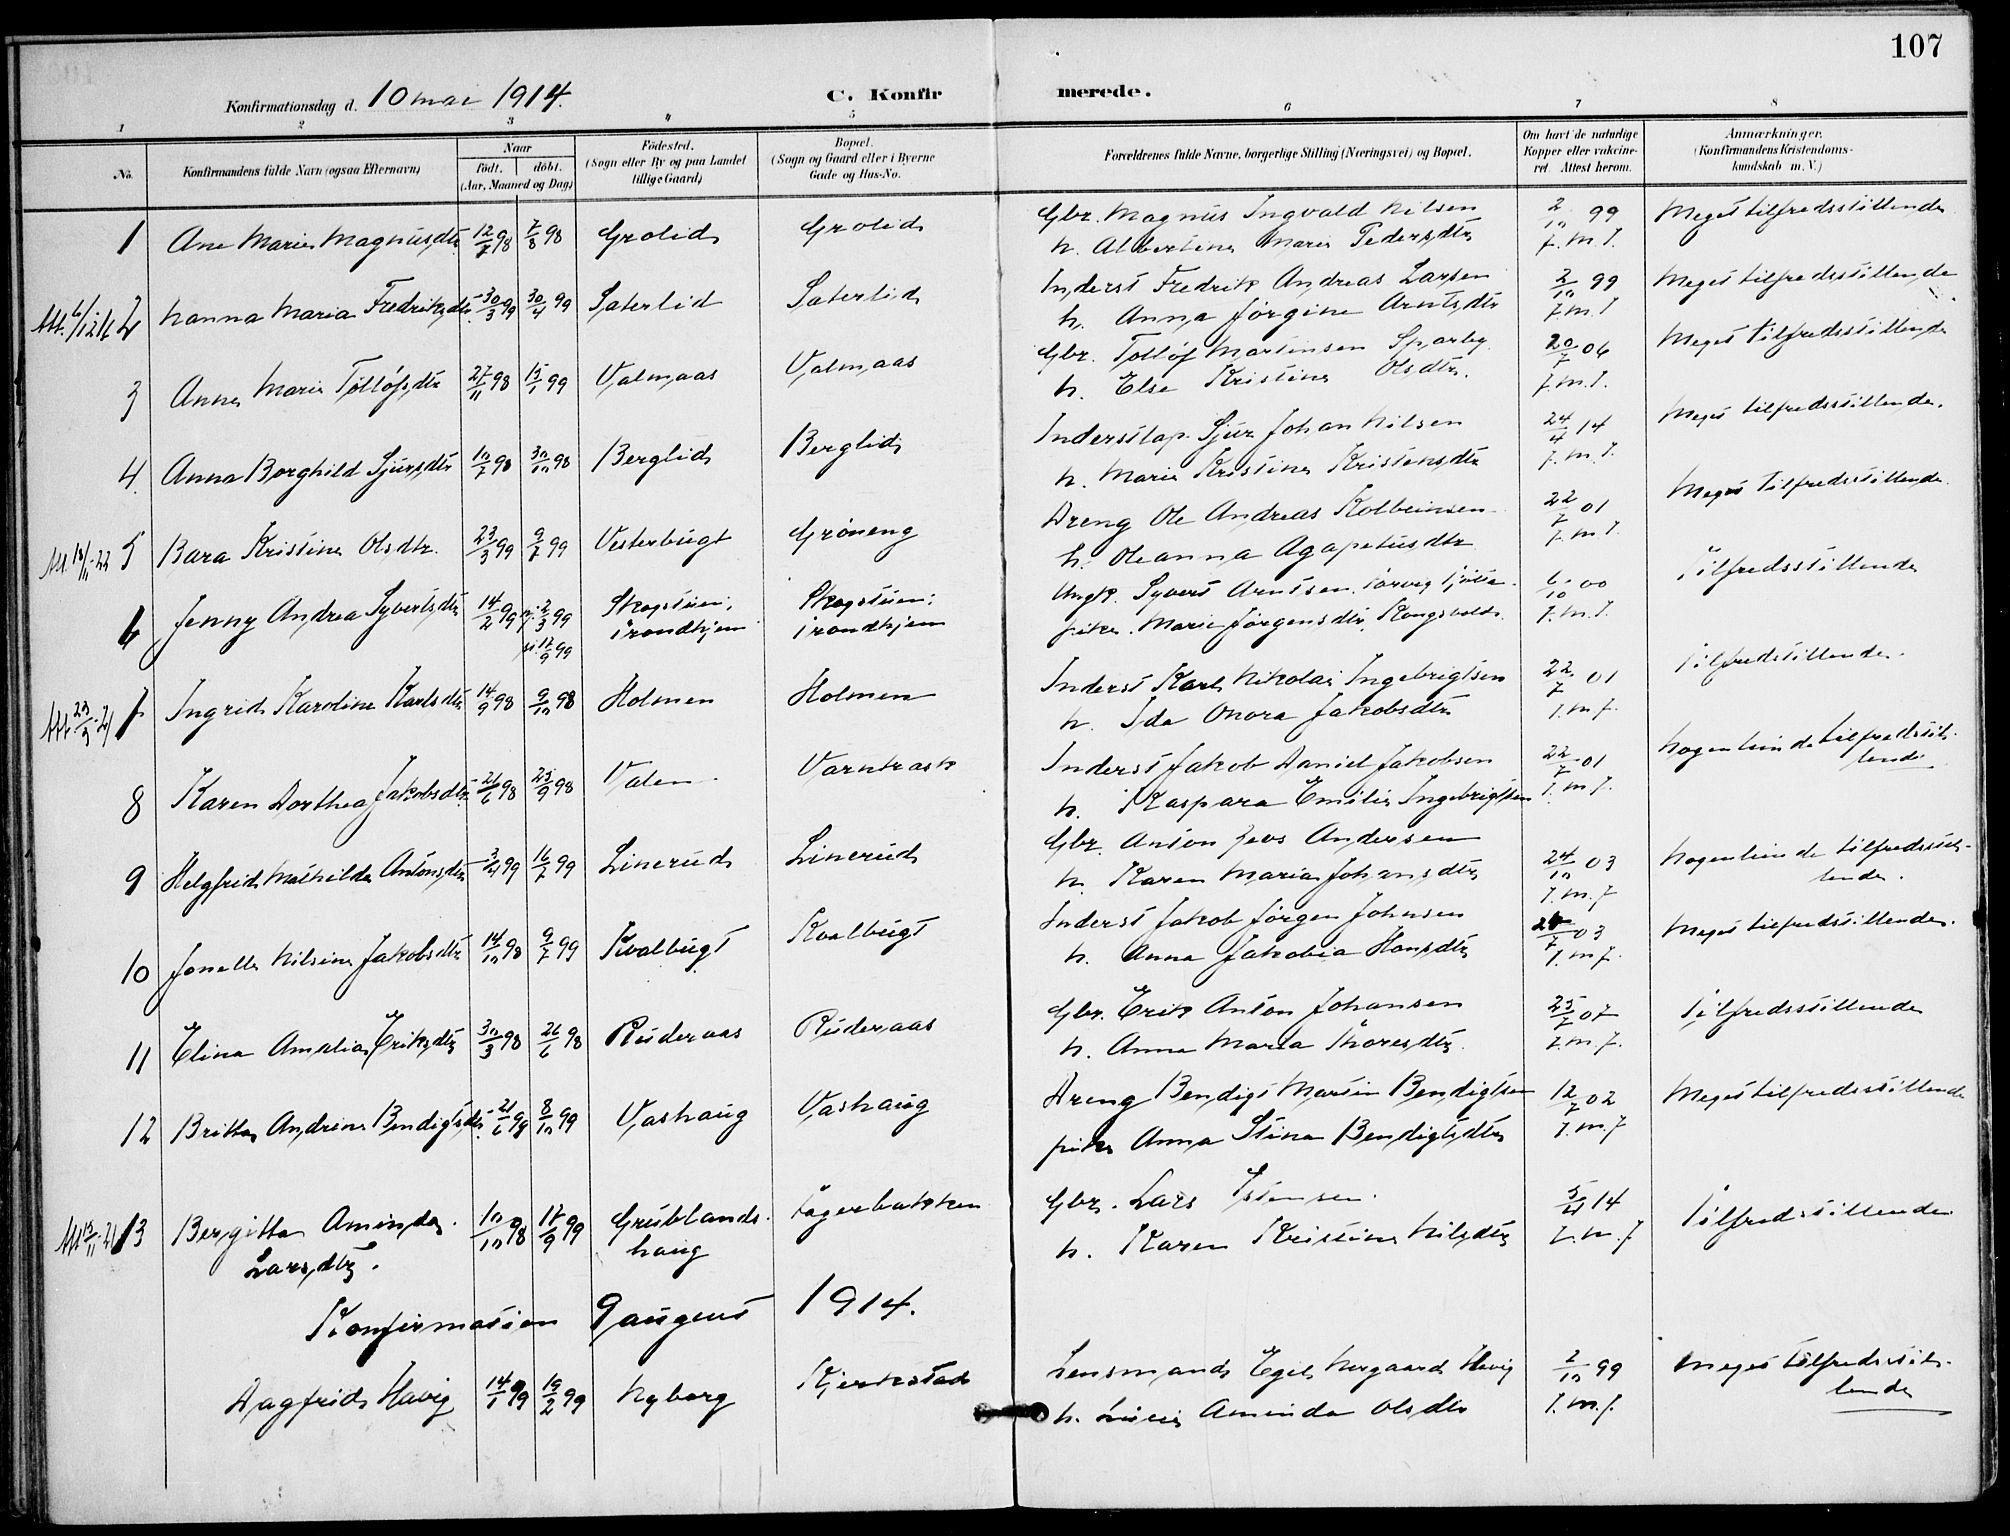 107
Konfirmationsdag d. 10 mai 1914.
C. Konfirmerede.
1 2 3 4 5 6 7 8
No.
Konfirmandens fulde Navn (ogsaa Efternavn)
Naar
födt. döbt.
(Aar, Maaned og Dag)
Födested.
(Sogn eller By og paa Landet
tillige Gaard)
Bopæl.
(Sogn og Gaard eller i Byerne
Gade og Hus-No.
Forældrenes fulde Navne, borgerlige Stilling (Næringsvei) og Bopæl.
Om havt de naturlige
Kopper eller vakcine-
ret. Attest herom.
Anmærkninger.
(Konfirmandens Kristendoms-
kundskab m. V.)
1 Ane Marie Magnusdtr 12/7 98 7/8 98 Grolid Grolid Gbr. Magnus Ingvald Nilsen 2/10 99 Meget tilfredsstillende
h. Albertine Marie Pedersdtr f. m. f.
2 Hanna Maria Fredriksdtr. 30/3 99 30/4 99 Sæterlid Sæterlid Inderst Fredrik Andreas Larsen 2/10 99 Meget tilfredsstillende
h. Anna Jørgine Arntsdtr f. m. f
3 Anne Marie Tolløfsdtr 27/11 98 15/1 99 Valmaas Valmaas Gbr. Tolløf Martinsen Sparby 20/7 06 Meget tilfredsstillende
h. Else Kristine Olsdtr. f. m. f.
4. Anna Borghild Sjursdtr 10/7 98 30/10 98 Berglid Berglid Inderstlap. Sjur Johan Nilsen 24/4 14 Meget tilfredsstillende.
h. Marie Kristine Kristensdtr f. m. f.
5 Bara Kristine Olsdtr. 23/3 99 9/7 99 Vesterbugt Grøneng Dreng Ole Andreas Kolbeinsen 22/7 01 Meget tilfredsstillende
h. Oleanna Agapetusdtr f. m. f.
6 Jenny Andrea Sivertsdtr 14/2 99 2/3 99 Skogstuen; Skogstuen; Ungk. Syvert Arntsen 6/10 00 Tilfredsstillende
17/9 99 i Trondhjem i Trondhjem pike. Marie Jørgensdtr, Kongsvold f. m. f.
Att. 23/3-21 7 Ingrid Karoline Karlsdtr 14/9 98 9/10 98 Holmen Holmen Inderst Karl Nikolai Ingebrigtsen 22/7 01 Tilfredstillende.
h. Ida Onora Jakobsdtr f. m. f.
8 Karen Dorthea Jakobsdtr 26/6 98 25/9 98 Valen Varntrask Inderst Jakob Daniel Jakobsen 22/7 01 Nogenlunde tilfredsstil-
lende
h. Kaspara Emilie Ingebrigtsen f. m. f.
9 Helgfrid Mathilde Antonsdtr 3/4 99 16/7 99 Linerud Linerud Gbr. Anton Jens Andersen 24/10 03 Nogenlunde tilfredsstil-
lende.
h. Karen Maria Johansdtr f. m. f
10 Jonelle Nilsine Jakobsdtr 14/10 98 9/7 99 Kvalbugt Kvalbugt Inderst Jakob Jørgen Johnsen 24/7 03 Meget tilfredsstillende.
h. Anna Jakobia Hansdtr f. m. f.
11 Elina Amalia Eriksdtr 30/3 98 26/6 98 Ruderaas Ruderaas Gbr. Erik Anton Johansen 25/7 07 Tilfredsstillende
h. Anna Maria Thoresdtr. f. m. f.
12 Britta Andrine Bendigtsdtr. 21/6 99 8/10 99 Vashaug Vashaug Dreng Bendigt Martin Bendigtsen 12/7 02 Meget tilfredsstillende
pike Anna Stina Bendigtsdtr f. m. f
13 Bergitta Aminda 10/10 98 17/9 99 Grublands- Fagerbakken Gbr. Lars Istensen. 5/4 14 Tilfredsstillende
Larsdtr. haug h. Karen Kristine Nilsdtr f. m. f
Konfirmasion 9 august 1914.
Dagfrid Havig 14/1 99 19/2 99 Nyborg Kjerkstad Lensmand Egil Nergaard Havig 2/10 99 Meget tilfredsstil-
lende
h. Lucie Aminda Olsdtr f. m. f.